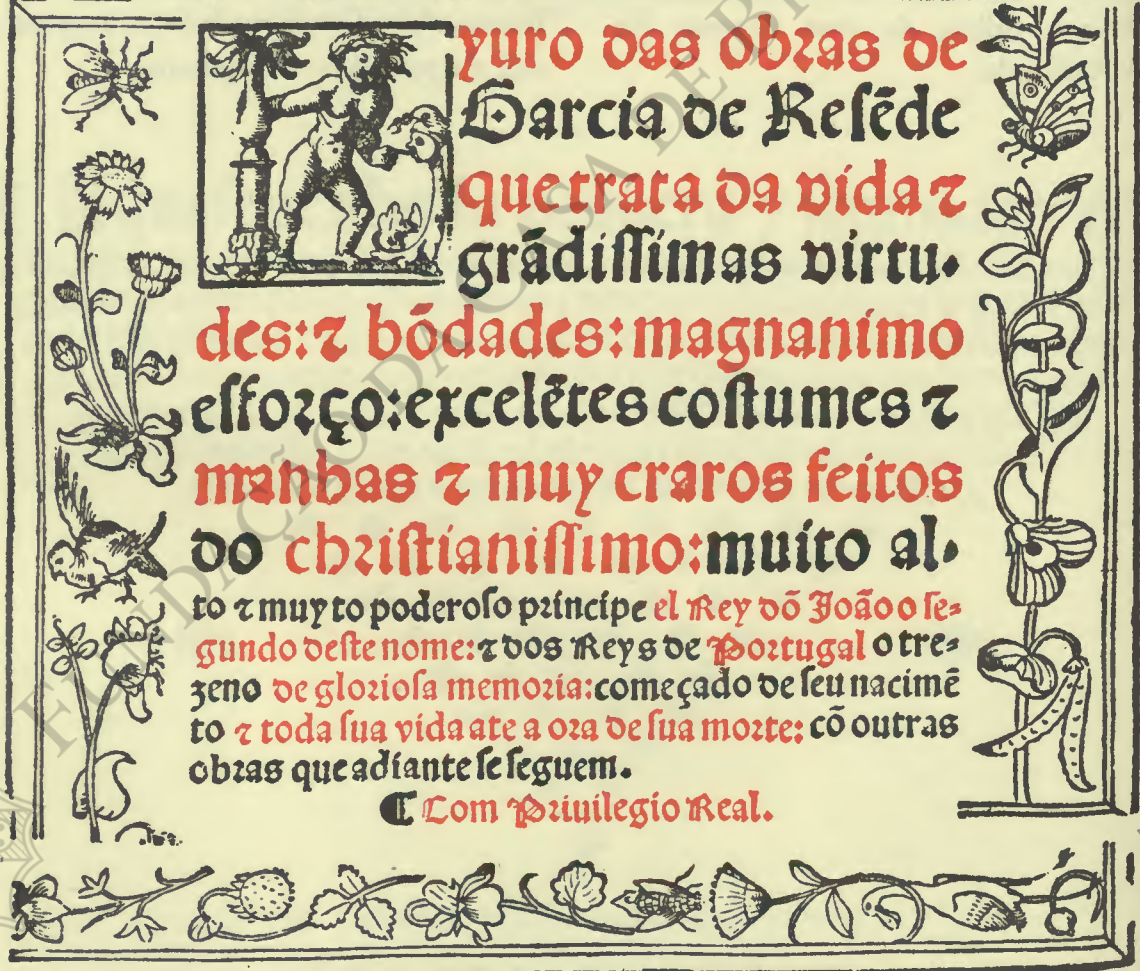 Lyuro das obras de
Garcia de Resẽde
que trata da vida ⁊
grãdissimas virtu-
des: ⁊ bõdades: magnanimo
esforço: excelẽtes costumes ⁊
manhas ⁊ muy craros feitos
do christianissimo: muito al-
to ⁊ muyto poderoso principe el Rey dõ João o se-
gundo deste nome: ⁊ dos Reys de Portugal o tre-
zeno de gloriosa memoria: começado de seu nacimẽ
to ⁊ toda sua vida ate a ora de sua morte: cõ outras
obras que adiante se seguem.
¶ Com Priuilegio Real.
FUNDAÇÃO DA CASA DE B